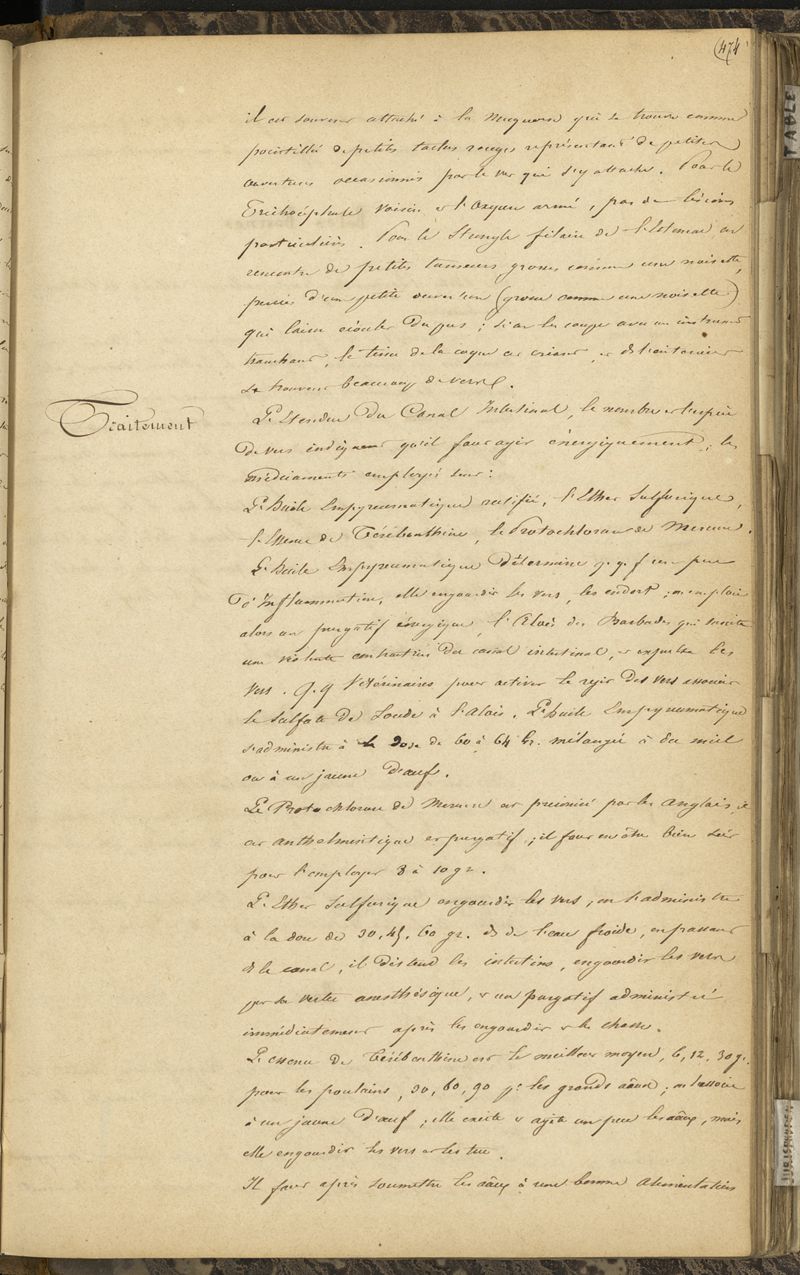 474
TABLE
il est souvent attaché à la muqueuse qui se trouve comme
pointillé de petites taches rouges représentant de petites
ouvertures occasionnés par le ver qui s'y attache. Pour le
Trichocéphale voisin et l'Oxyure armé, pas de lésions
particulières. Pour le Strongle filaire de l'Estomac on
rencontre de petites tumeurs grosses comme une noisette,
percées d'une petite ouverture (grosse comme une noisette)
qui laisse écouler du pus ; si on les coupe avec un instrument
tranchant, le tissu de la coque est criant, et ds l'intérieur
se trouvent beaucoup de vers.
Traitement
L'Etendue du Canal Intestinal, le nombre et l'espèce
de vers indiquent qu'il faut agir énergiquement ; les
médicaments employés sont :
L'Huile Empyreumatique rectifiée, l'Ether Sulfurique,
l'Essence de Térébenthine, le Protochlorure de Mercure.
L'Huile Empyreumatique détermine q.q.f. un peu
d'Inflammation, elle engourdit les vers, les endort ; on emploie
alors un purgatif énergique, l'Aloès des Barbades qui suscite
une violente contraction du canal intestinal, et expulse les
vers. Q.q Vétérinaires pour activer le rejet des vers associent
le sulfate de Soude à l'Aloès. L'huile Empyreumatique
s'administre à la dose de 60 à 64 gr. mélangée à du miel
ou à un jaune d'œuf.
Le Protochlorure de Mercure est préconisé par les Anglais, il
est anthelmintique et purgatif ; il faut en être bien sûr
pour l'employer 8 à 10 gr.
L'Ether Sulfurique engourdit les vers, on l'administre
à la dose de 30, 45, 60 gr. ds de l'eau froide, en passant
ds le canal, il distend les intestins, engourdit les vers
par sa vertu anesthésique, et un purgatif administré
immédiatement après les engourdir et les chasse.
L'essence de Térébenthine est le meilleur moyen, 6, 12, 30 gr.
pour les poulains, 30, 60, 90 pr les grands aâux ; on l'associe
à un jaune d'œuf ; elle excite et agite un peu les aâux, mais
elle engourdit les vers et les tue.
Il faut après soumettre les aâux à une bonne alimentation
JURISPRUDEN